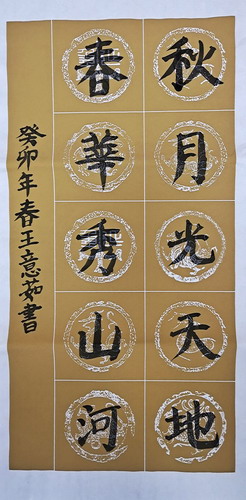 秋月光天地
春華秀山河
癸卯年春王意茹書